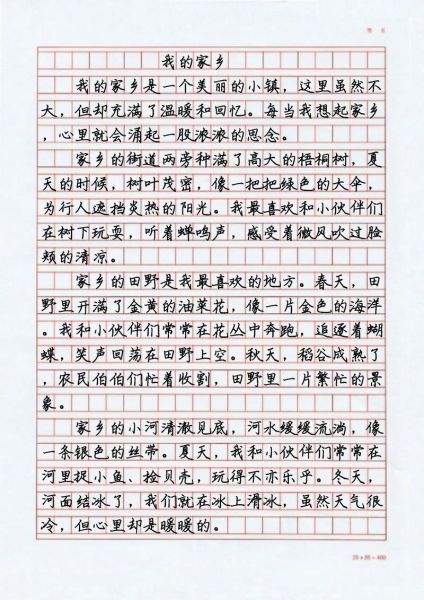 我的家乡
我的家乡是一个美丽的小镇，这里虽然不
大，但却充满了温暖和回忆。每当我想起家乡
，心里就会涌起一股浓浓的思念。
家乡的街道两旁种满了高大的梧桐树，夏
天的时候，树叶茂密，像一把把绿色的大伞，
为行人遮挡炎热的阳光。我最喜欢和小伙伴们
在树下玩耍，听着蝉鸣声，感受着微风吹过脸
颊的清凉。
家乡的田野是我最喜欢的地方。春天，田
野里开满了金黄的油菜花，像一片金色的海洋
。我和小伙伴们常常在花丛中奔跑，追逐着蝴
蝶，笑声回荡在田野上空。秋天，稻谷成熟了
，农民伯伯们忙着收割，田野里一片繁忙的景
象。
家乡的小河清澈见底，河水缓缓流淌，像
一条银色的丝带。夏天，我和小伙伴们常常在
河里捉小鱼、捡贝壳，玩得不亦乐乎。冬天，
河面结冰了，我们就在冰上滑冰，虽然天气很
冷，但心里却是暖暖的。